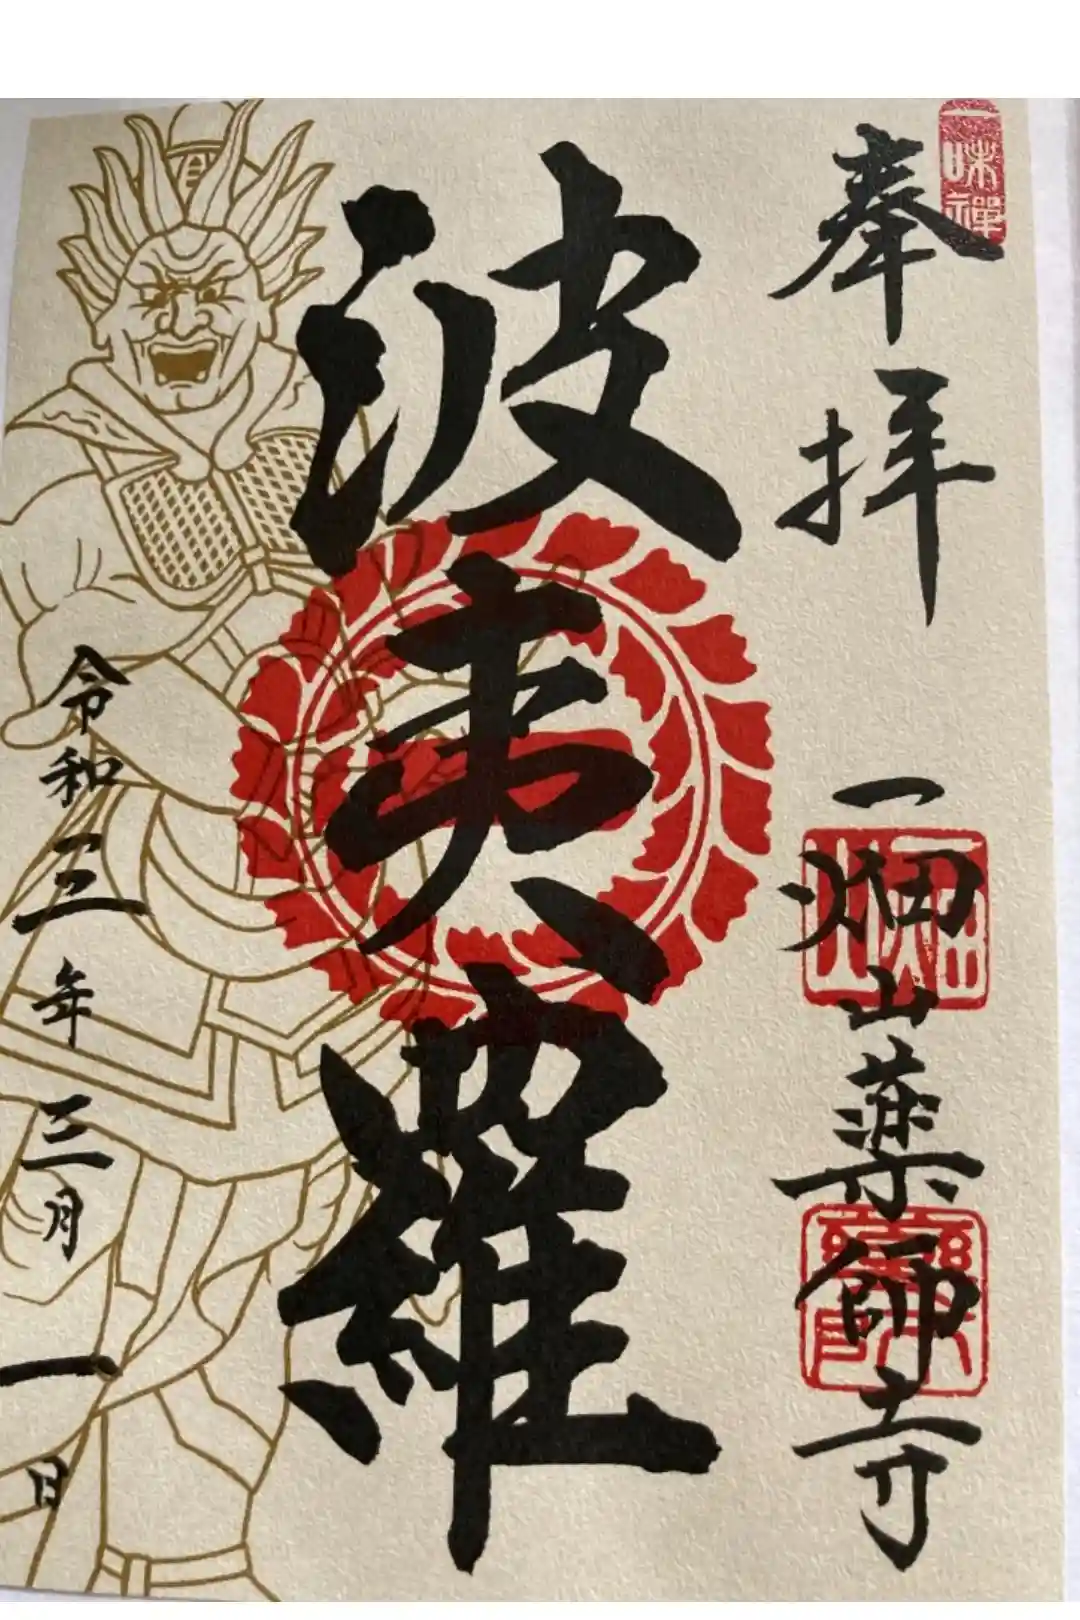 一味禅
奉拝
一畑山薬師寺
波夷羅
令和三年三月一日